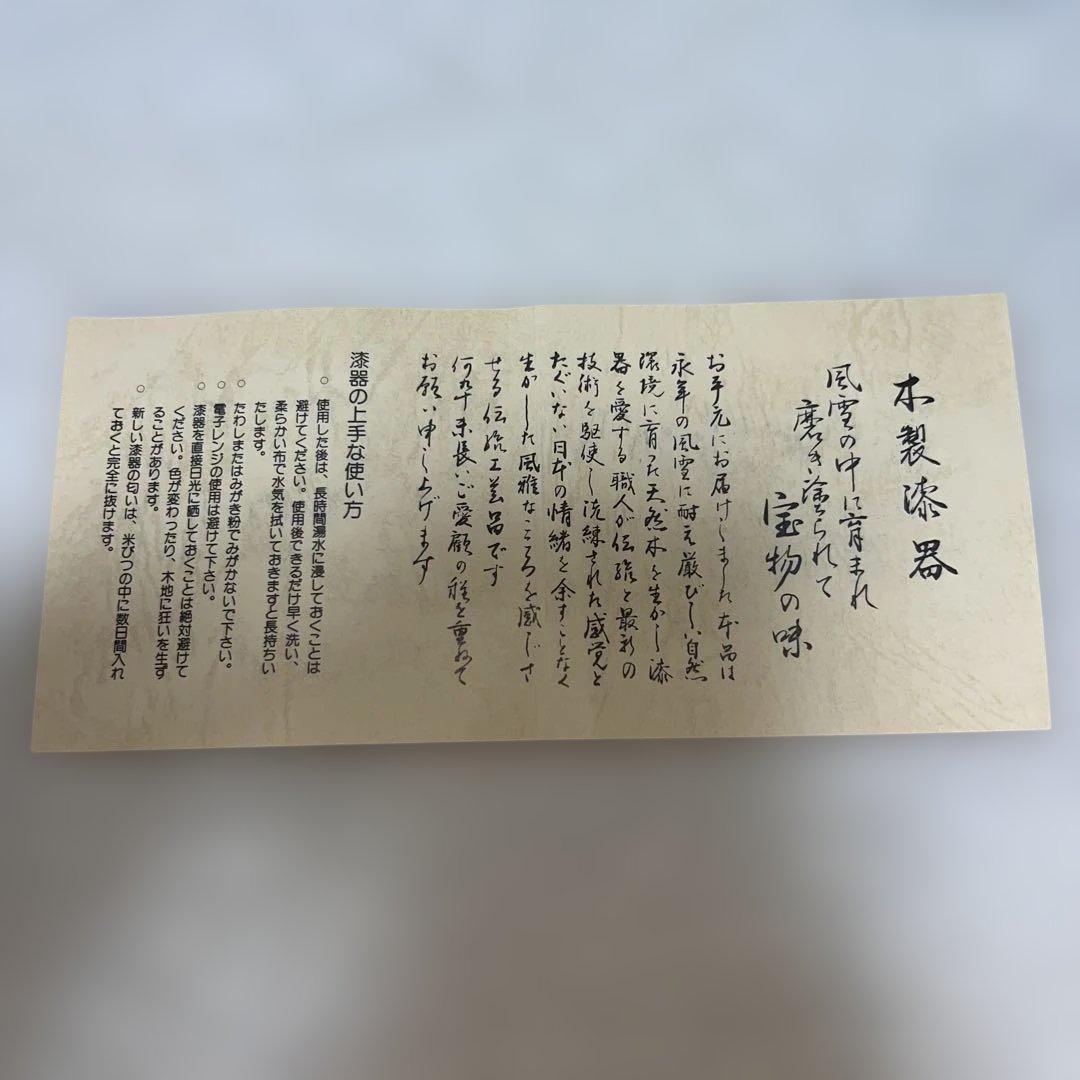 木製漆器
風雪の中に育まれ
磨き塗られて
宝物の味
お手元にお届けしました本品は
永年の風雪に耐え厳びしい自然
環境に育った天然木を生かし漆
器を愛する職人が伝統と最新の
技術を駆使し洗練された感覚と
たぐいない日本の情緒を余すことなく
生かした風雅なこころを感じさ
せる伝統工芸品です
何卒末長いご愛顧の程を重ねて
お願い申し上げます
漆器の上手な使い方
○ 使用した後は、長時間湯水に浸しておくことは
避けてください。使用後できるだけ早く洗い、
柔らかい布で水気を拭いておきますと長持ちい
たします。
○ たわしまたはみがき粉でみがかないで下さい。
○ 電子レンジの使用は避けて下さい。
○ 漆器を直接日光に晒しておくことは絶対避けて
ください。色が変わったり、木地に狂いを生ず
ることがあります。
○ 新しい漆器の匂いは、米びつの中に数日間入れ
ておくと完全に抜けます。